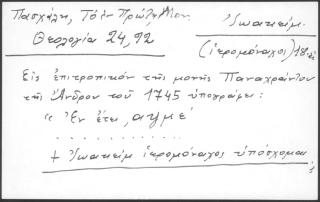 Πασχάλη,
Θεολογία 24, 92
Ἰωακείμ
(ἱερομόναχος) 18
Εἰς ἐπιτροπικὸν τῆς μονῆς Παναχράντου
τῆς Ἄνδρου τοῦ 1745 ὑπογράφει:
« Ἐν ἔτει, αψμε΄
. . . . . . . . . . .
+ Ἰωακεὶμ ἱερομόναχος ὑπόσχομαι